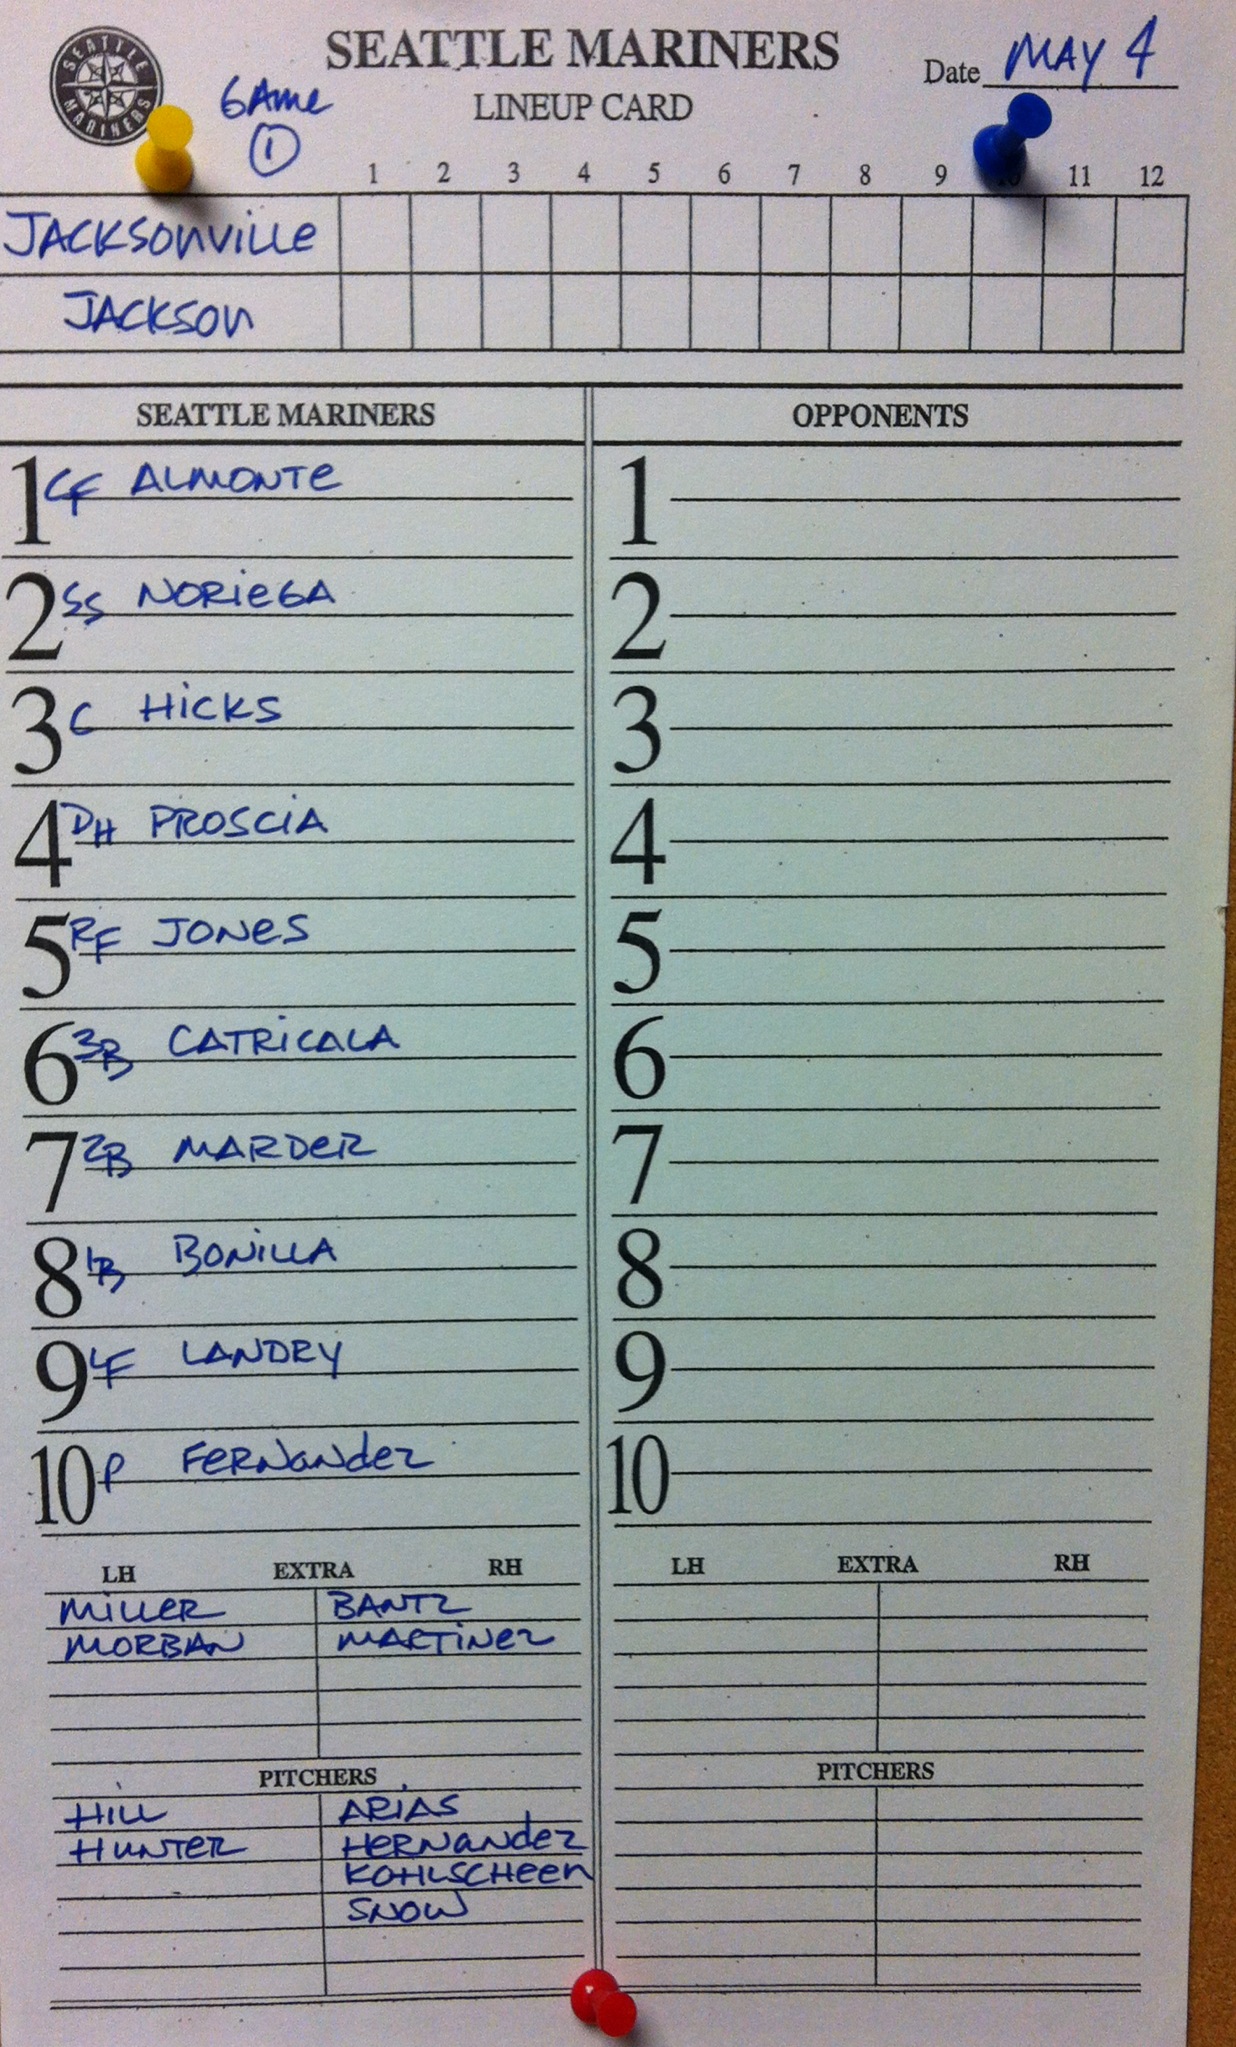 SEATTLE MARINERS
SEATTLE MARINERS
LINEUP CARD
Date MAY 4
GAme
1
1 2 3 4 5 6 7 8 9 10 11 12
JACKSONVILLe
JACKSON
SEATTLE MARINERS OPPONENTS
1 CF ALMONTe 1
2 SS NORieGA 2
3 C HicKS 3
4 DH PROSCiA 4
5 RF JONeS 5
6 3B CATRiCALA 6
7 2B MARDeR 7
8 1B BONiLLA 8
9 LF LANDRY 9
10 P FeRNandez 10
LH EXTRA RH LH EXTRA RH
MiLLeR BANTZ
MORBAN MARTiNez
PITCHERS PITCHERS
HiLL ARiAS
HUNTeR HeRNandez
KOHLSCHeen
SNOW